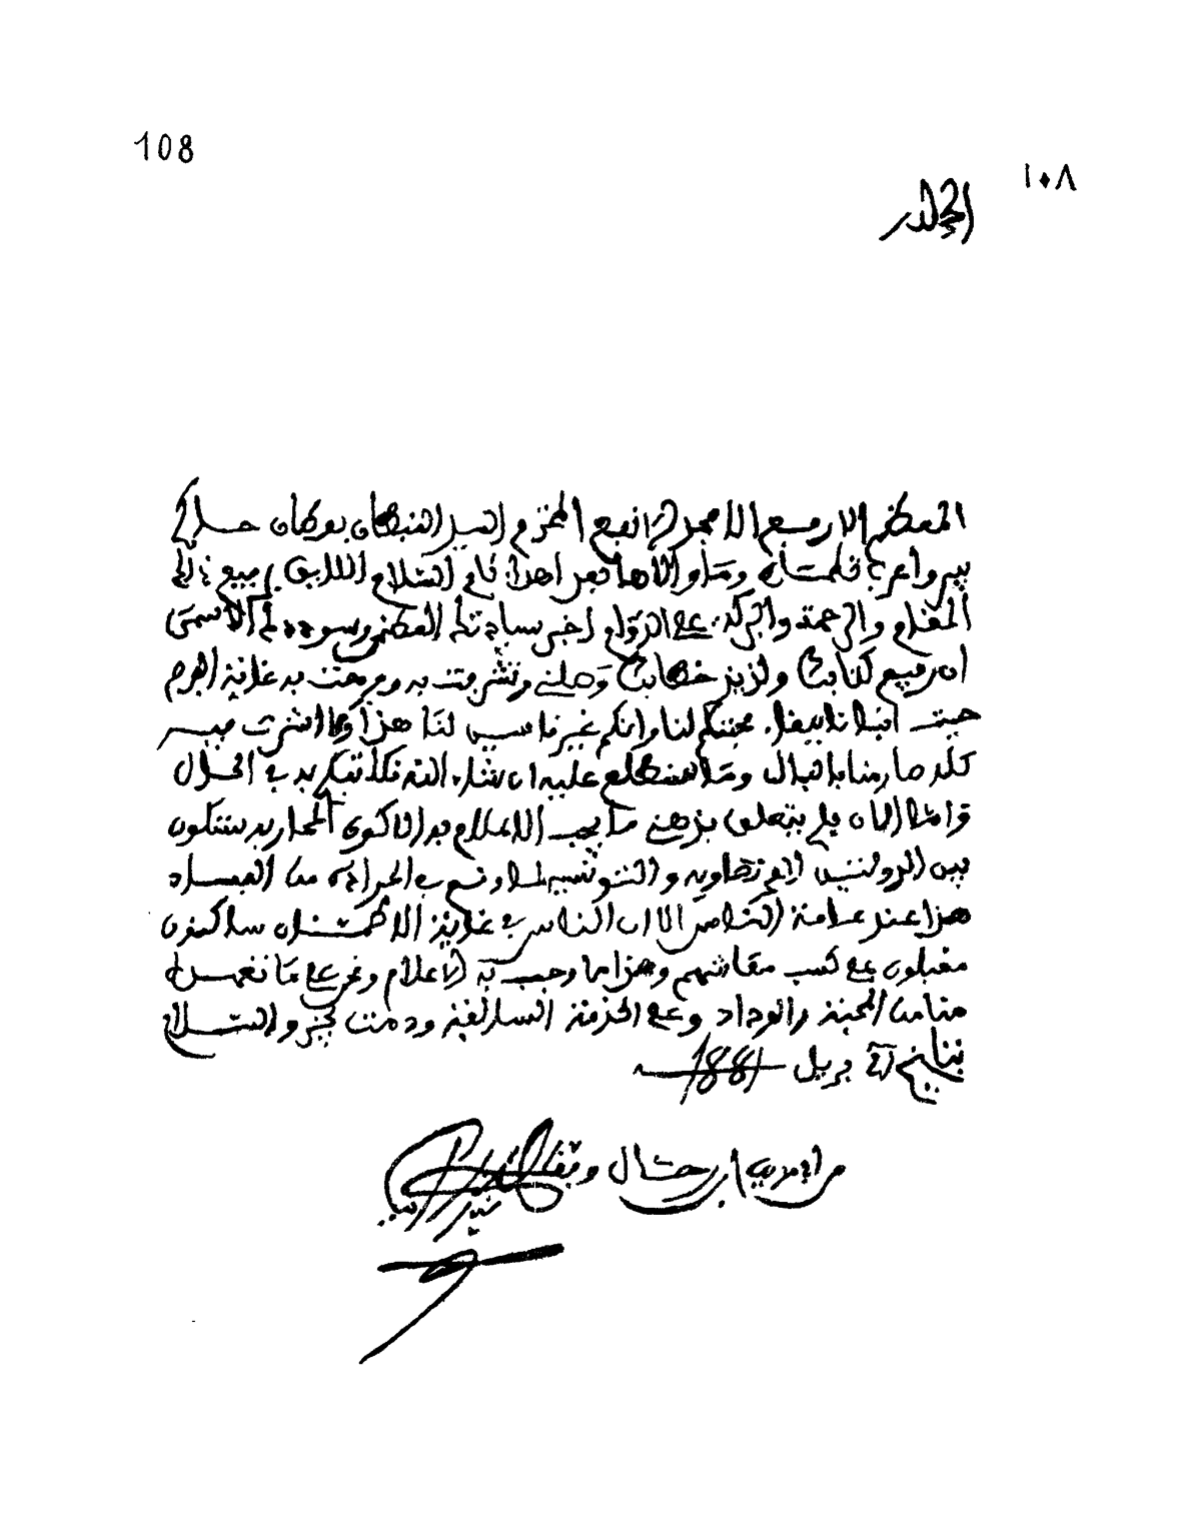 108
١٠٨
الحمد لله
المعظم الارفع الامجد الانفع المحترم السيد القبطان بوكطان حاكم
بيرواعرب تلمسان وما والاها بعد اهداء تام السلام اللايق برفيع ذلك
المقام والرحمة والبركة على الدوام اخبر سيادتكم العظمى وسوددكم الاسمى
ان رفيع كتابك ولذيذ خطابك وصلني وتشرفت به وفرحت به غاية الفرح
حيث انبانا ببقاء محبتكم لنا وانكم غير ناسيين لنا هذا وما اشرت فيه
كله صار منا بالبال وما سنطلع عليه ان شاء الله نكاتبك به في الحال
واما الان فلم يتعلق بذهني ما يجب الاعلام به الا كون المحاربة ستكون
بين الدولتين الفرنصاوية والتونسية لما وقع في الحدادة من الفساد
هذا عند عامة الناس الا ان الناس في غاية الاطمئنان ساكنون
مقبلون على كسب معاشهم وهذا ما وجب به الاعلام ونحن على ما تعهده
منا من المحبة والوداد وعلى الخدمة السالفة ودمت بخير والسلام
بتاريخ آ فريل 1881
من ابن رحال وفقه الله